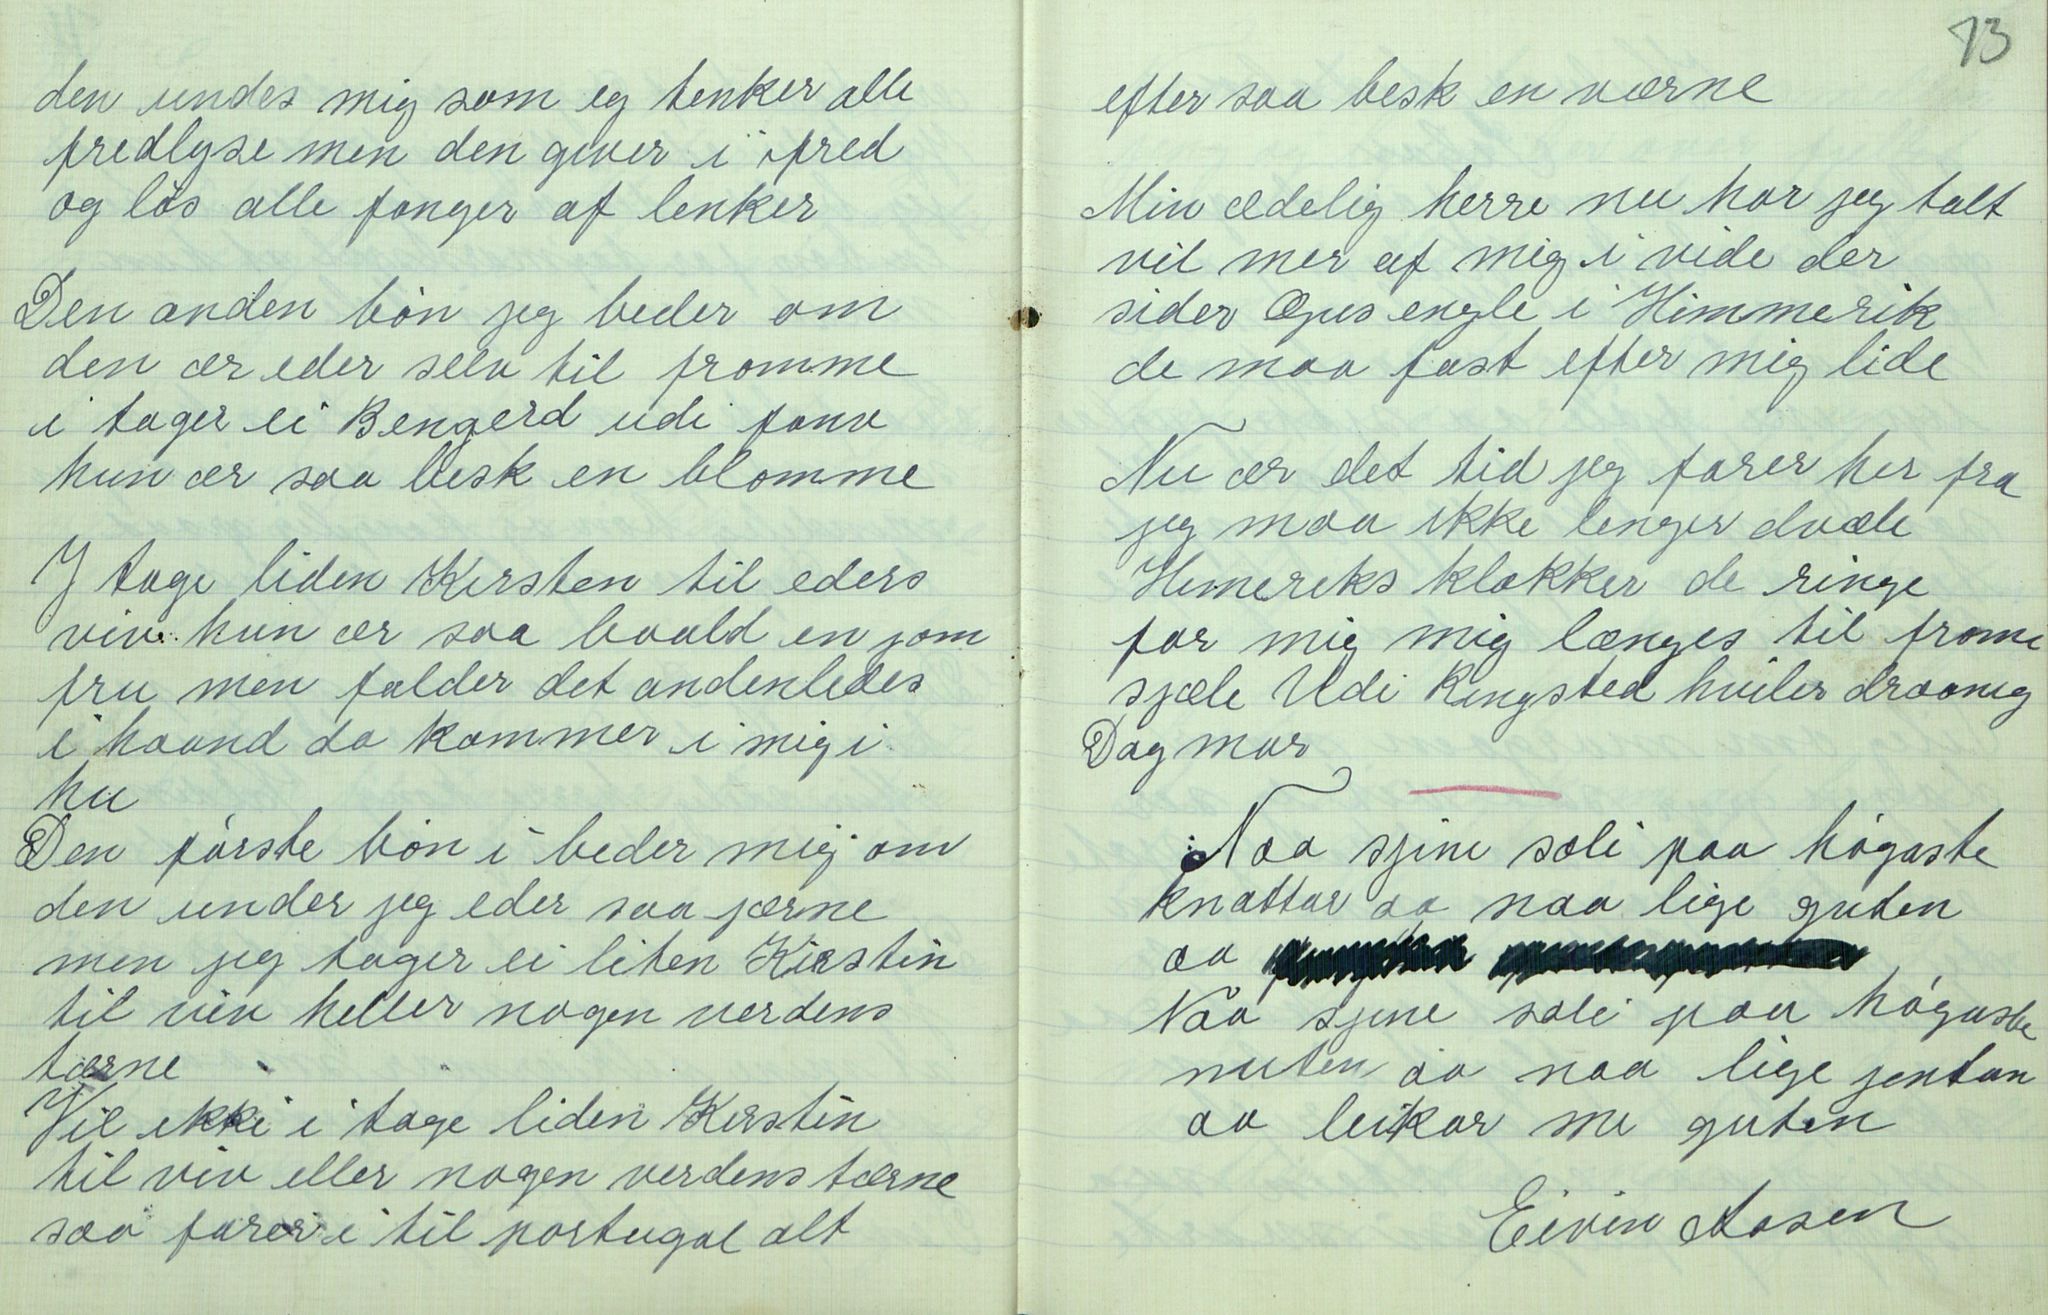 den undes mig som eg tenker alle
fredlyse men den giver i fred
og løs alle fonger af lenker
Den anden bøn jeg beder om
den ær eder selv til fromme
i tager ei Bengerd udi fonv
hun ær saa besk en blomme
I tage liden Kirsten til eders
viv hun ær saa baald en jom
fru men falder det andenledes
i haand da kommer i mig i
hu
Den første bøn i beder mig om
den under jeg eder saa jærne
men jeg tager ei liten Kirstin
til viv heller nogen verdens
tærne
Vil ikki i tage liden Kirstin
til viv eller nogen verdens tærne
saa farer i til portugal alt
13
efter saa besk en værne
Min ædelig herre nu har jeg talt
vil mer af mig i vide der
sider Gus engle i Himmerik
de maa fast efter mig lide
Nu ær det tid jeg farer her fra
jeg maa ikke lenger dvæle
Himeriks klokker de ringe
for mig mig længes til fromi
sjæle Udi Ringsted hviler droonig
Dagmar
Naa sjine soli paa høgaste
knattar aa naa lige guten
aa
Naa sjine soli paa høgaste
nuten aa naa lige jentan
aa leikar me guten
Eivin Aasen